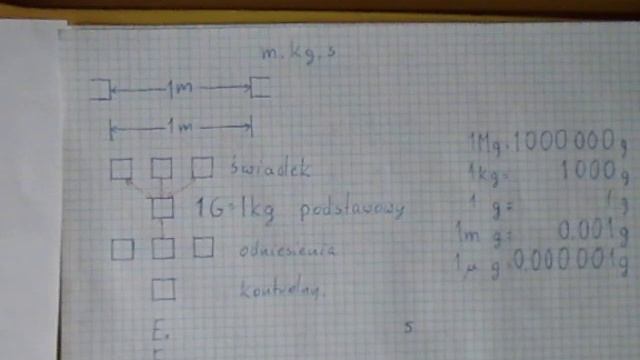 m. kg, s
1m
1m
świadek
1G=1kg podstawowy
odniesienia
kontrolny.
E.
s
1Mg=1000000g
1kg= 1000g
1 g= 1g
1m g= 0.001g
1µ g=0.000001g